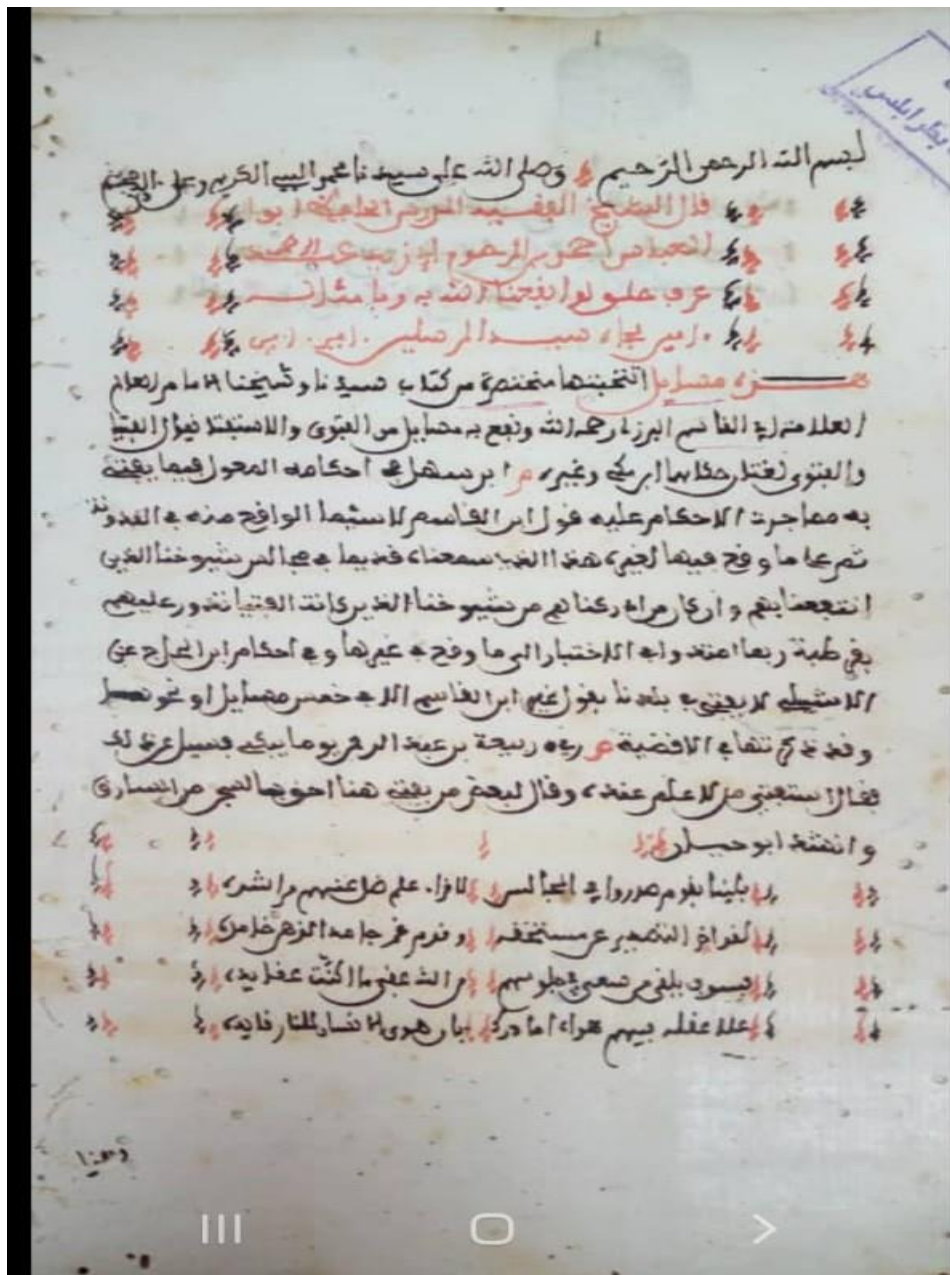 بطرابلس
بسم الله الرحمن الرحيم وصلى الله على سيدنا محمد النبي الكريم وعلى
قال الشيخ الفقيه المدرس العلامة ابو
العباس احمد بن المرحوم عبد الرحمن
عرف حلولو نفعنا الله به وبامثاله
امين بجاه سيد المرسلين امين امين
هذه مسايل انتخبتها مختصرة من كتاب سيدنا وشيخنا الامام العالم
العلامة ابي القاسم البرزلي رحمه الله ونفع به مسايل من الفتوى والاستفتا يقال الفتيا
والفتوى لغتان حكاهما ابن مكي وغيره م ابن سهل في احكامه المعول فيما يفتى
به مما جرت الاحكام عليه قول ابن القاسم لاسيما الواقع منه في المدونة
ثم على ما وقع فيها لغيره هذا الذي سمعناه قديما في مجالس شيوخنا الذين
انتفعنا بهم وان كان من ادركناهم من شيوخنا الذين كانت الفتيا تدور عليهم
بقرطبة ربما عند الاختيار الى ما وقع في غيرها وفي احكام ابن الحاج عن
لا يفتى في بلدنا بقول غير ابن القاسم الا في خمس مسايل او نحوها
وقد ذكرتها في الاقضية م رءاه ربيعة بن عبد الرحمن يوما يبكي فسيل عن ذلك
فقال استفتي من لا علم عنده وقال لبعض من يفتي هنا احق بالسجن من السارق
وانشد ابو حيان
بلينا بقوم صدروا في المجالس لاقراء علم ضل عنهم مراشده
وقدم غمر جامد الذهن خامده
من الله عقبى ما اكنت عقايده
علا عقله فيهم هواه اما درى بان هوى الانسان للنار قايده
وهنا